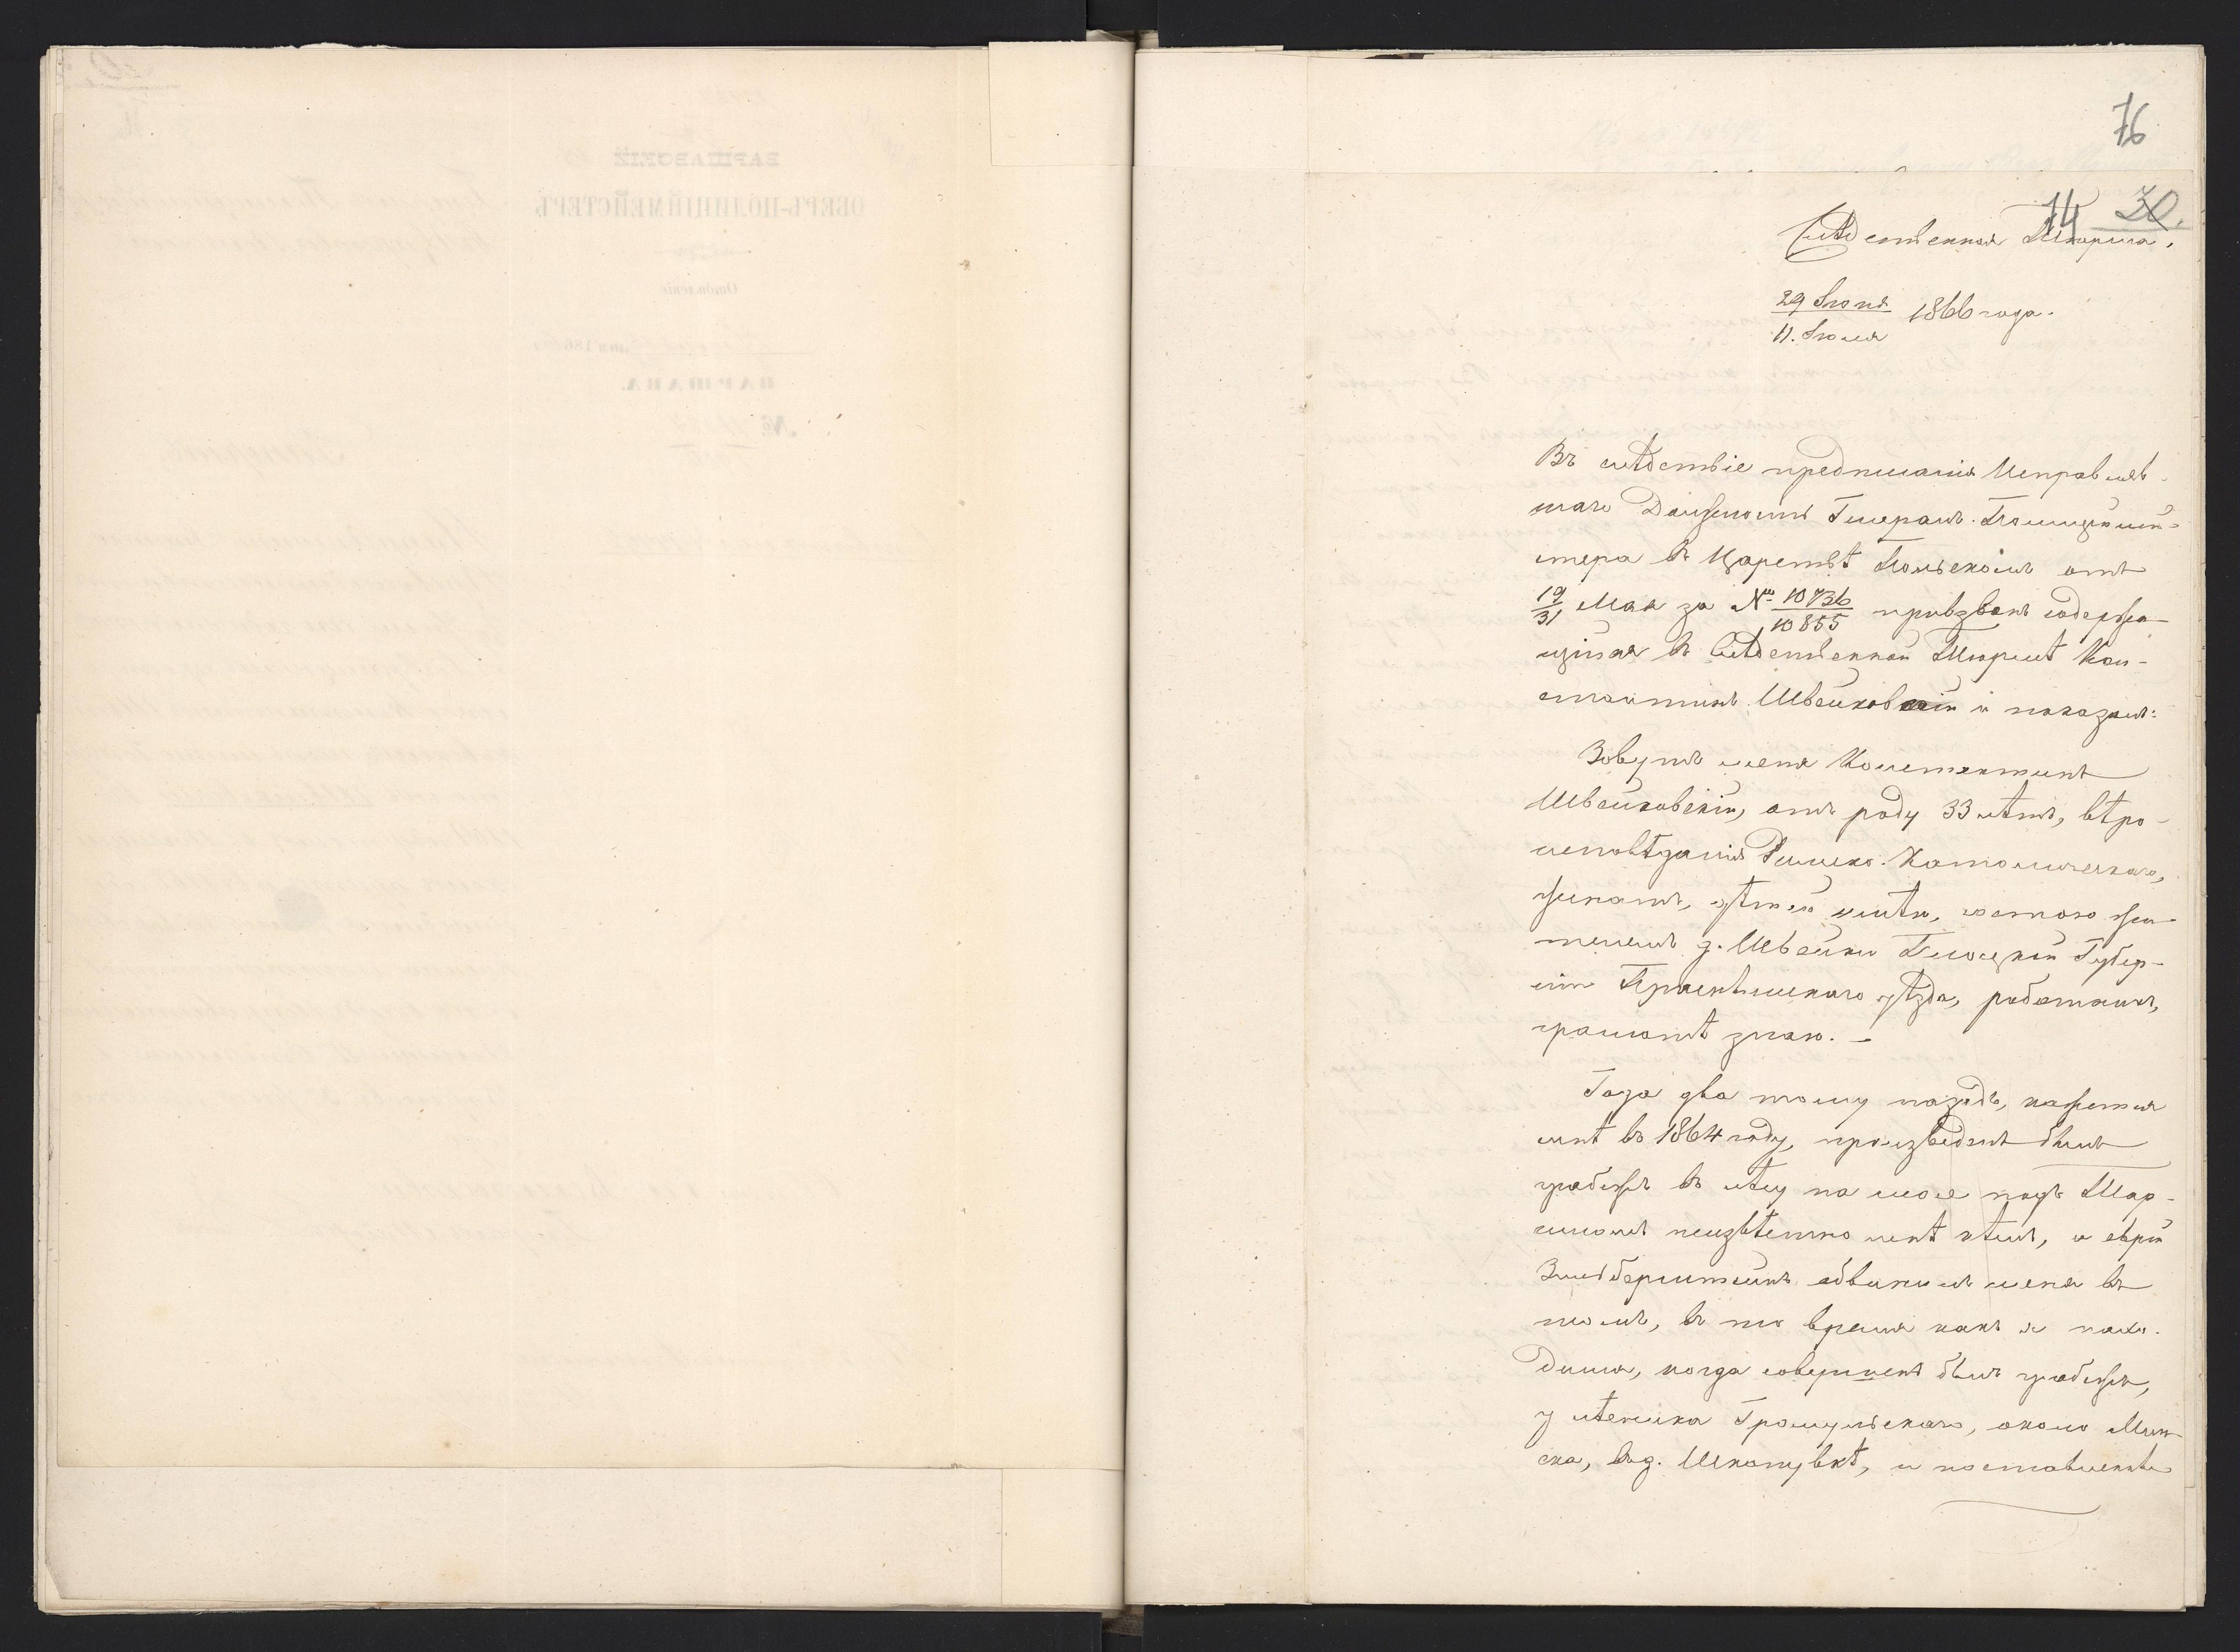 76
74 30.
Слѣдственная Тюрьма.
29 Іюня
11 Іюля 1866 года.
Въ слѣдствіе предписанія Исправляв-
шаго Должность Генералъ-Полицеймей-
стера въ Царствѣ Польскомъ отъ
19/31 Мая за № 10736/10855 призванъ содержа-
щійся въ Слѣдственной Тюрьмѣ Кон-
стантинъ Швейковскій и показалъ:
Зовутъ меня Константинъ
Швейковскій, отъ роду 33 лѣтъ, вѣро-
исповѣданія Римско-Католическаго,
женатъ, дѣтей имѣю, постоянно жи-
телемъ д. Швейки Плоцкой Губер-
ніи Праснышскаго уѣзда, работникъ,
грамотѣ знаю. –
Года два тому назадъ, кажется
мнѣ въ 1864 году, произведенъ былъ
грабежъ въ лѣсу на шоссе подъ
неизвѣстно мнѣ кѣмъ, и еврей
Зильберштейнъ обвинилъ меня въ
томъ, въ то время какъ я нахо-
дился, когда совершенъ былъ грабежъ,
у лѣсника Громульскаго, около Мин-
ска, въ д. Шкопувкѣ, и